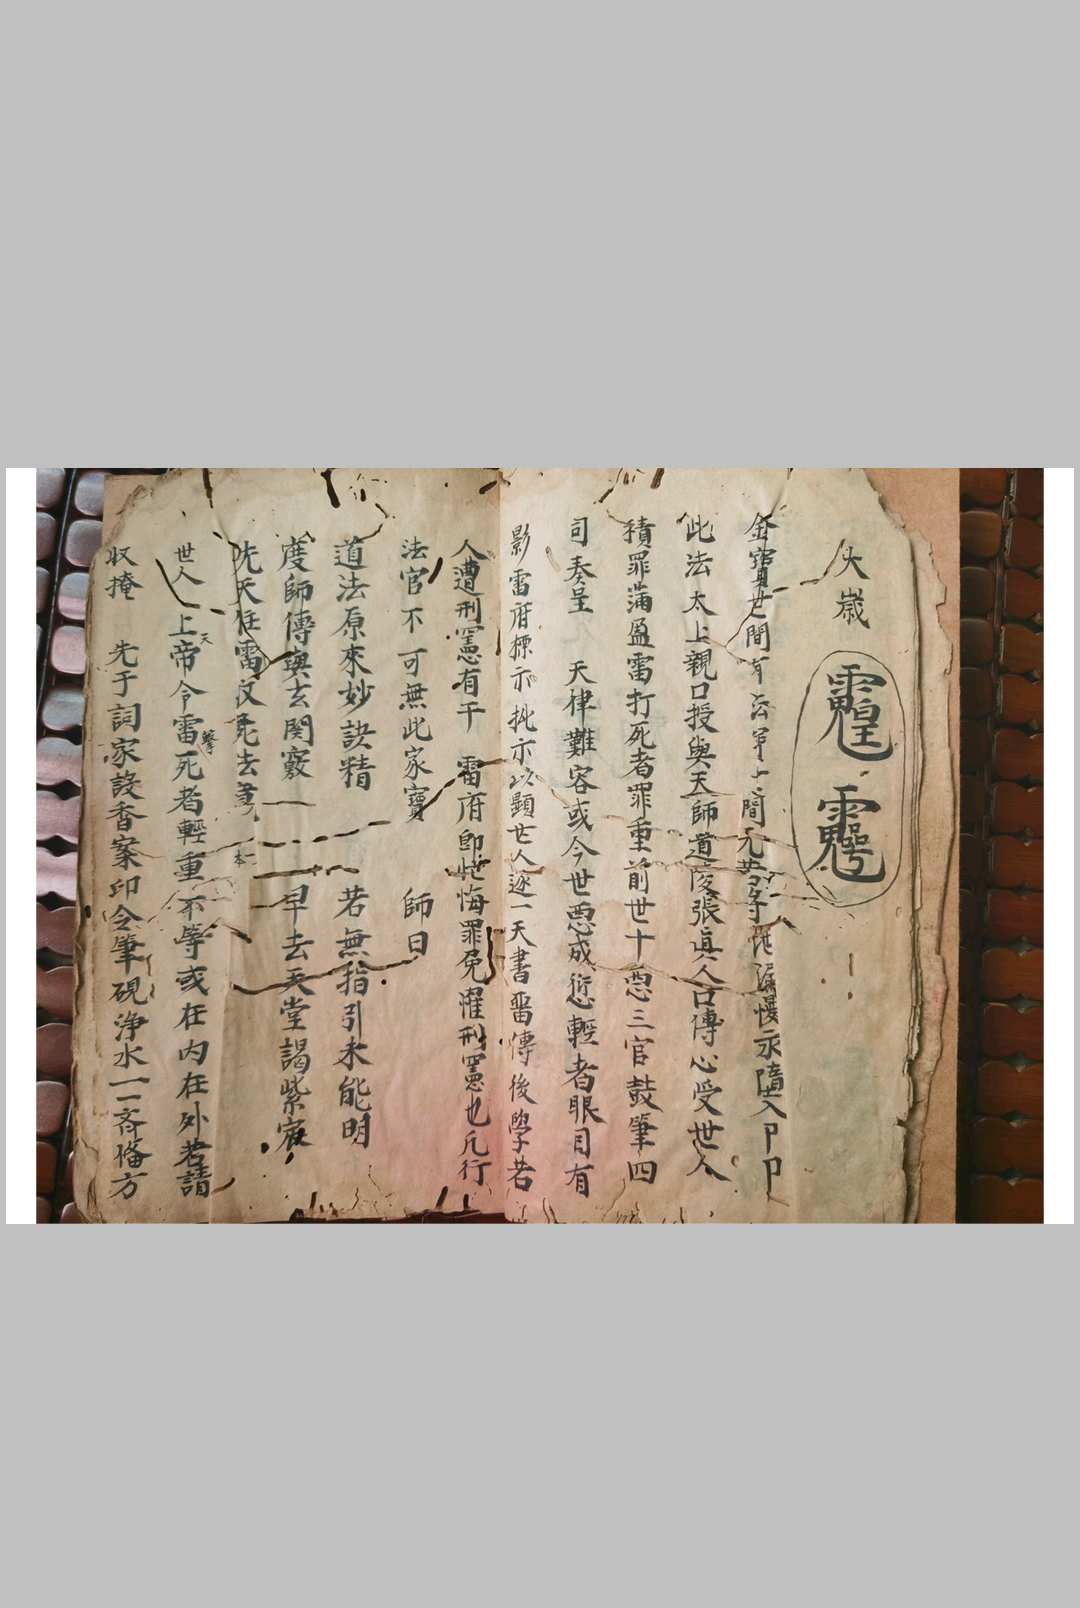 火歲
金寶世間有法軍 間 永隨入
此法太上親口授與天師道陵張真人口傳心受世人
積罪滿盈雷打死者罪重前世十惡三官鼓筆四
司奏呈 天律難容或今世惡成愆輕者眼目有
影雷府標示批示以顯世人逐一天書畱傳後學若
人遭刑憲有干 雷府即懺悔罪免罹刑憲也凡行
法官不可無此家寶 師曰
道法原來妙訣精 若無指引未能明
度師傳與玄関竅 早去天堂謁紫宸
先天 雷文 去
世人上帝令雷擊死者輕重不等或在内在外若請
収掩 先于詞家設香案印令筆硯浄水一一斉俻方